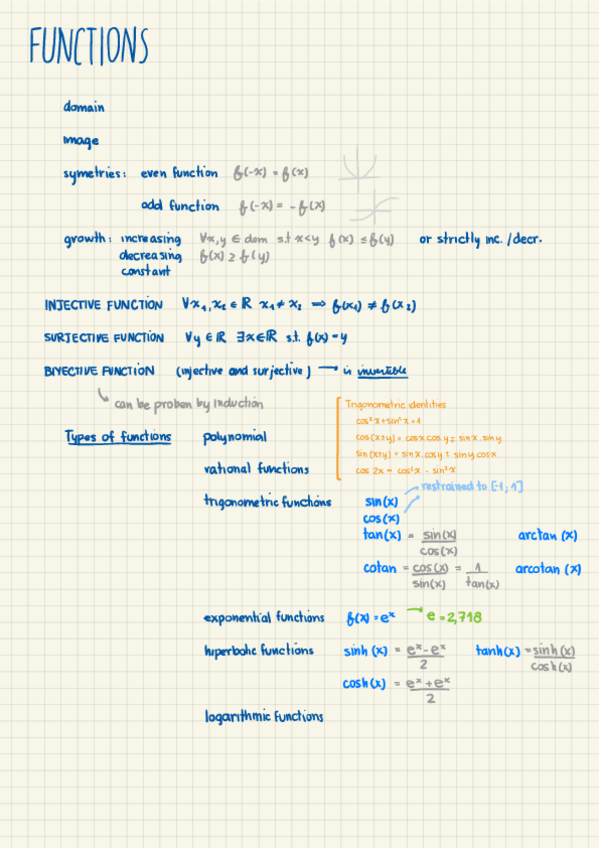 FUNCTIONS
domain
image
symetries: even function f(-x) = f(x)
odd function f(-x) = - f(x)
growth: increasing ∀x,y ∈ dom s.t x<y f(x) ≤ f(y) or strictly inc. /decr.
decreasing f(x) ≥ f(y)
constant
INJECTIVE FUNCTION ∀x₁, x₂ ∈ ℝ x₁ ≠ x₂ ⟹ f(x₁) ≠ f(x₂)
SURJECTIVE FUNCTION ∀y ∈ ℝ ∃x∈ℝ s.t. f(x) = y
BIYECTIVE FUNCTION (injective and surjective) → is invertible
can be proben by induction
Trigonometric identities
cos²x + sin²x = 1
cos(x±y) = cosx.cosy ∓ sinx.siny
sin(x±y) = sinx.cosy ± siny.cosx
cos 2x = cos²x - sin²x
Types of functions polynomial
rational functions
trigonometric functions sin(x) restrained to [-1, 1]
cos(x)
tan(x) = sin(x)/cos(x) arctan (x)
cotan = cos(x)/sin(x) = 1/tan(x) arcotan (x)
exponential functions f(x) = eˣ → e = 2,718
hiperbolic functions sinh (x) = eˣ - eˣ/2 tanh(x) = sinh(x)/cosh(x)
cosh(x) = eˣ + eˣ/2
logarithmic functions